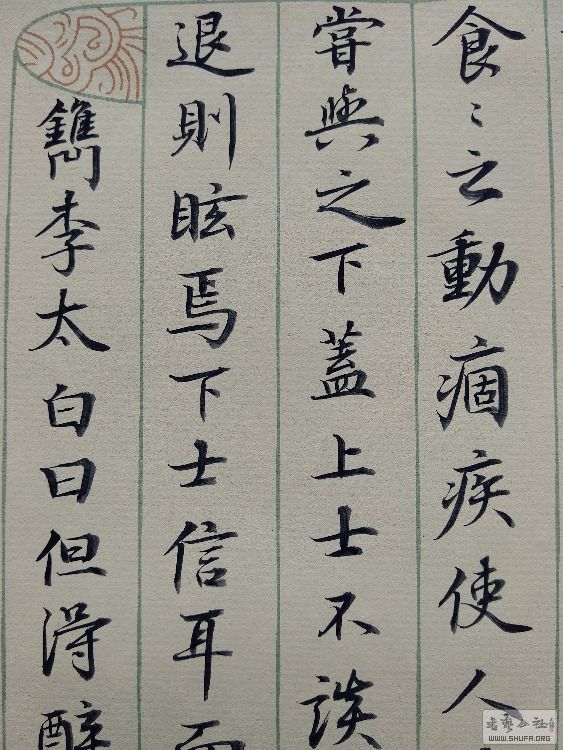 食〻云動痼疾使人
嘗與之下蓋上士不談
退則眩焉下士信耳而
鐫李太白曰但得醉
書藝公社
WWW.SHUFA.ORG